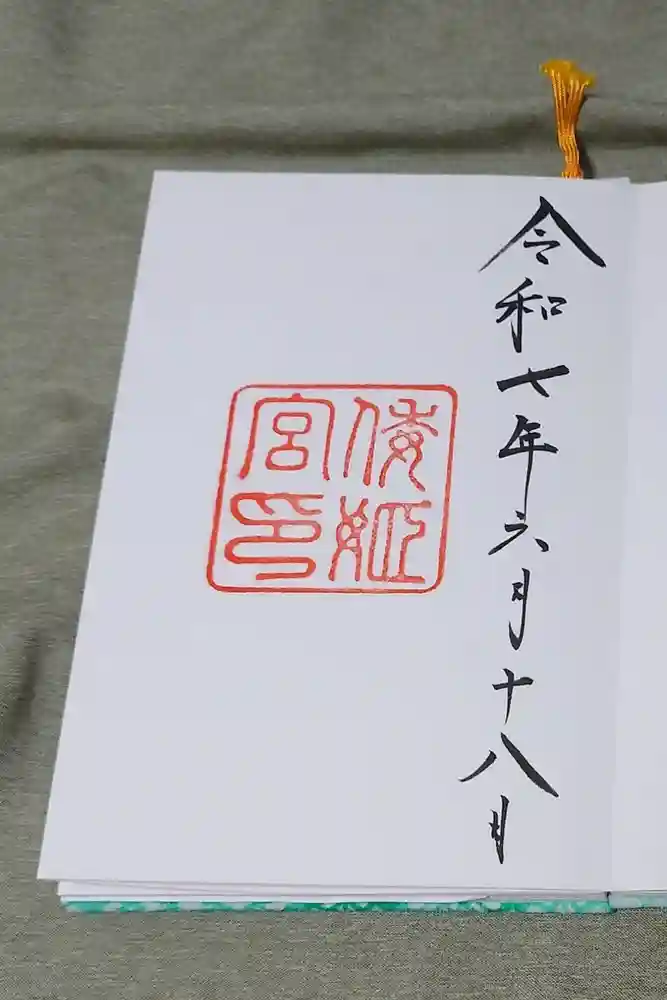 令和七年六月十八日
倭姫
宮印